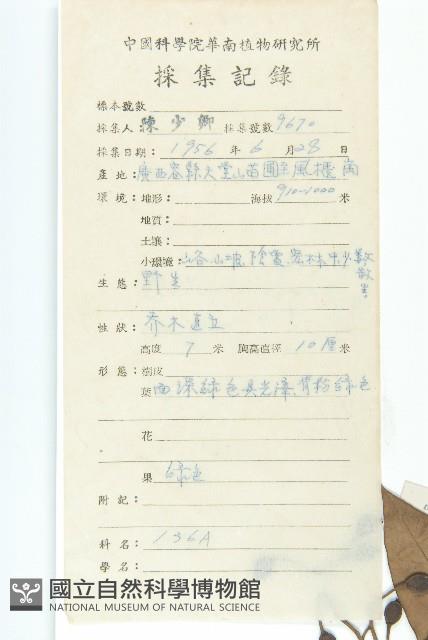 中國科學院華南植物研究所
採集記錄
標本號數
採集人：陳少卿 採集號數 9670
採集日期：1956 年 6 月 28 日
產地：廣西容縣天堂山苗圃至風櫃
環境：地形： 海拔 910-1000 米
地質：
土壤：
小環境：山谷、山坡、陰處、密林中少數散生
生態：野生
性狀：乔木直立
高度 7 米 胸高直徑 10厘米
形態：樹皮
葉 面深綠色具光澤，背粉綠色
花
果 綠色
附記：
科名：136A
學名：
國立自然科學博物館
NATIONAL MUSEUM OF NATURAL SCIENCE